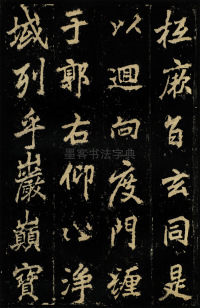 抵厥旨玄同是
以迴向度門纏
于郭右仰止淨
域列乎巖巔寶
墨客书法字典